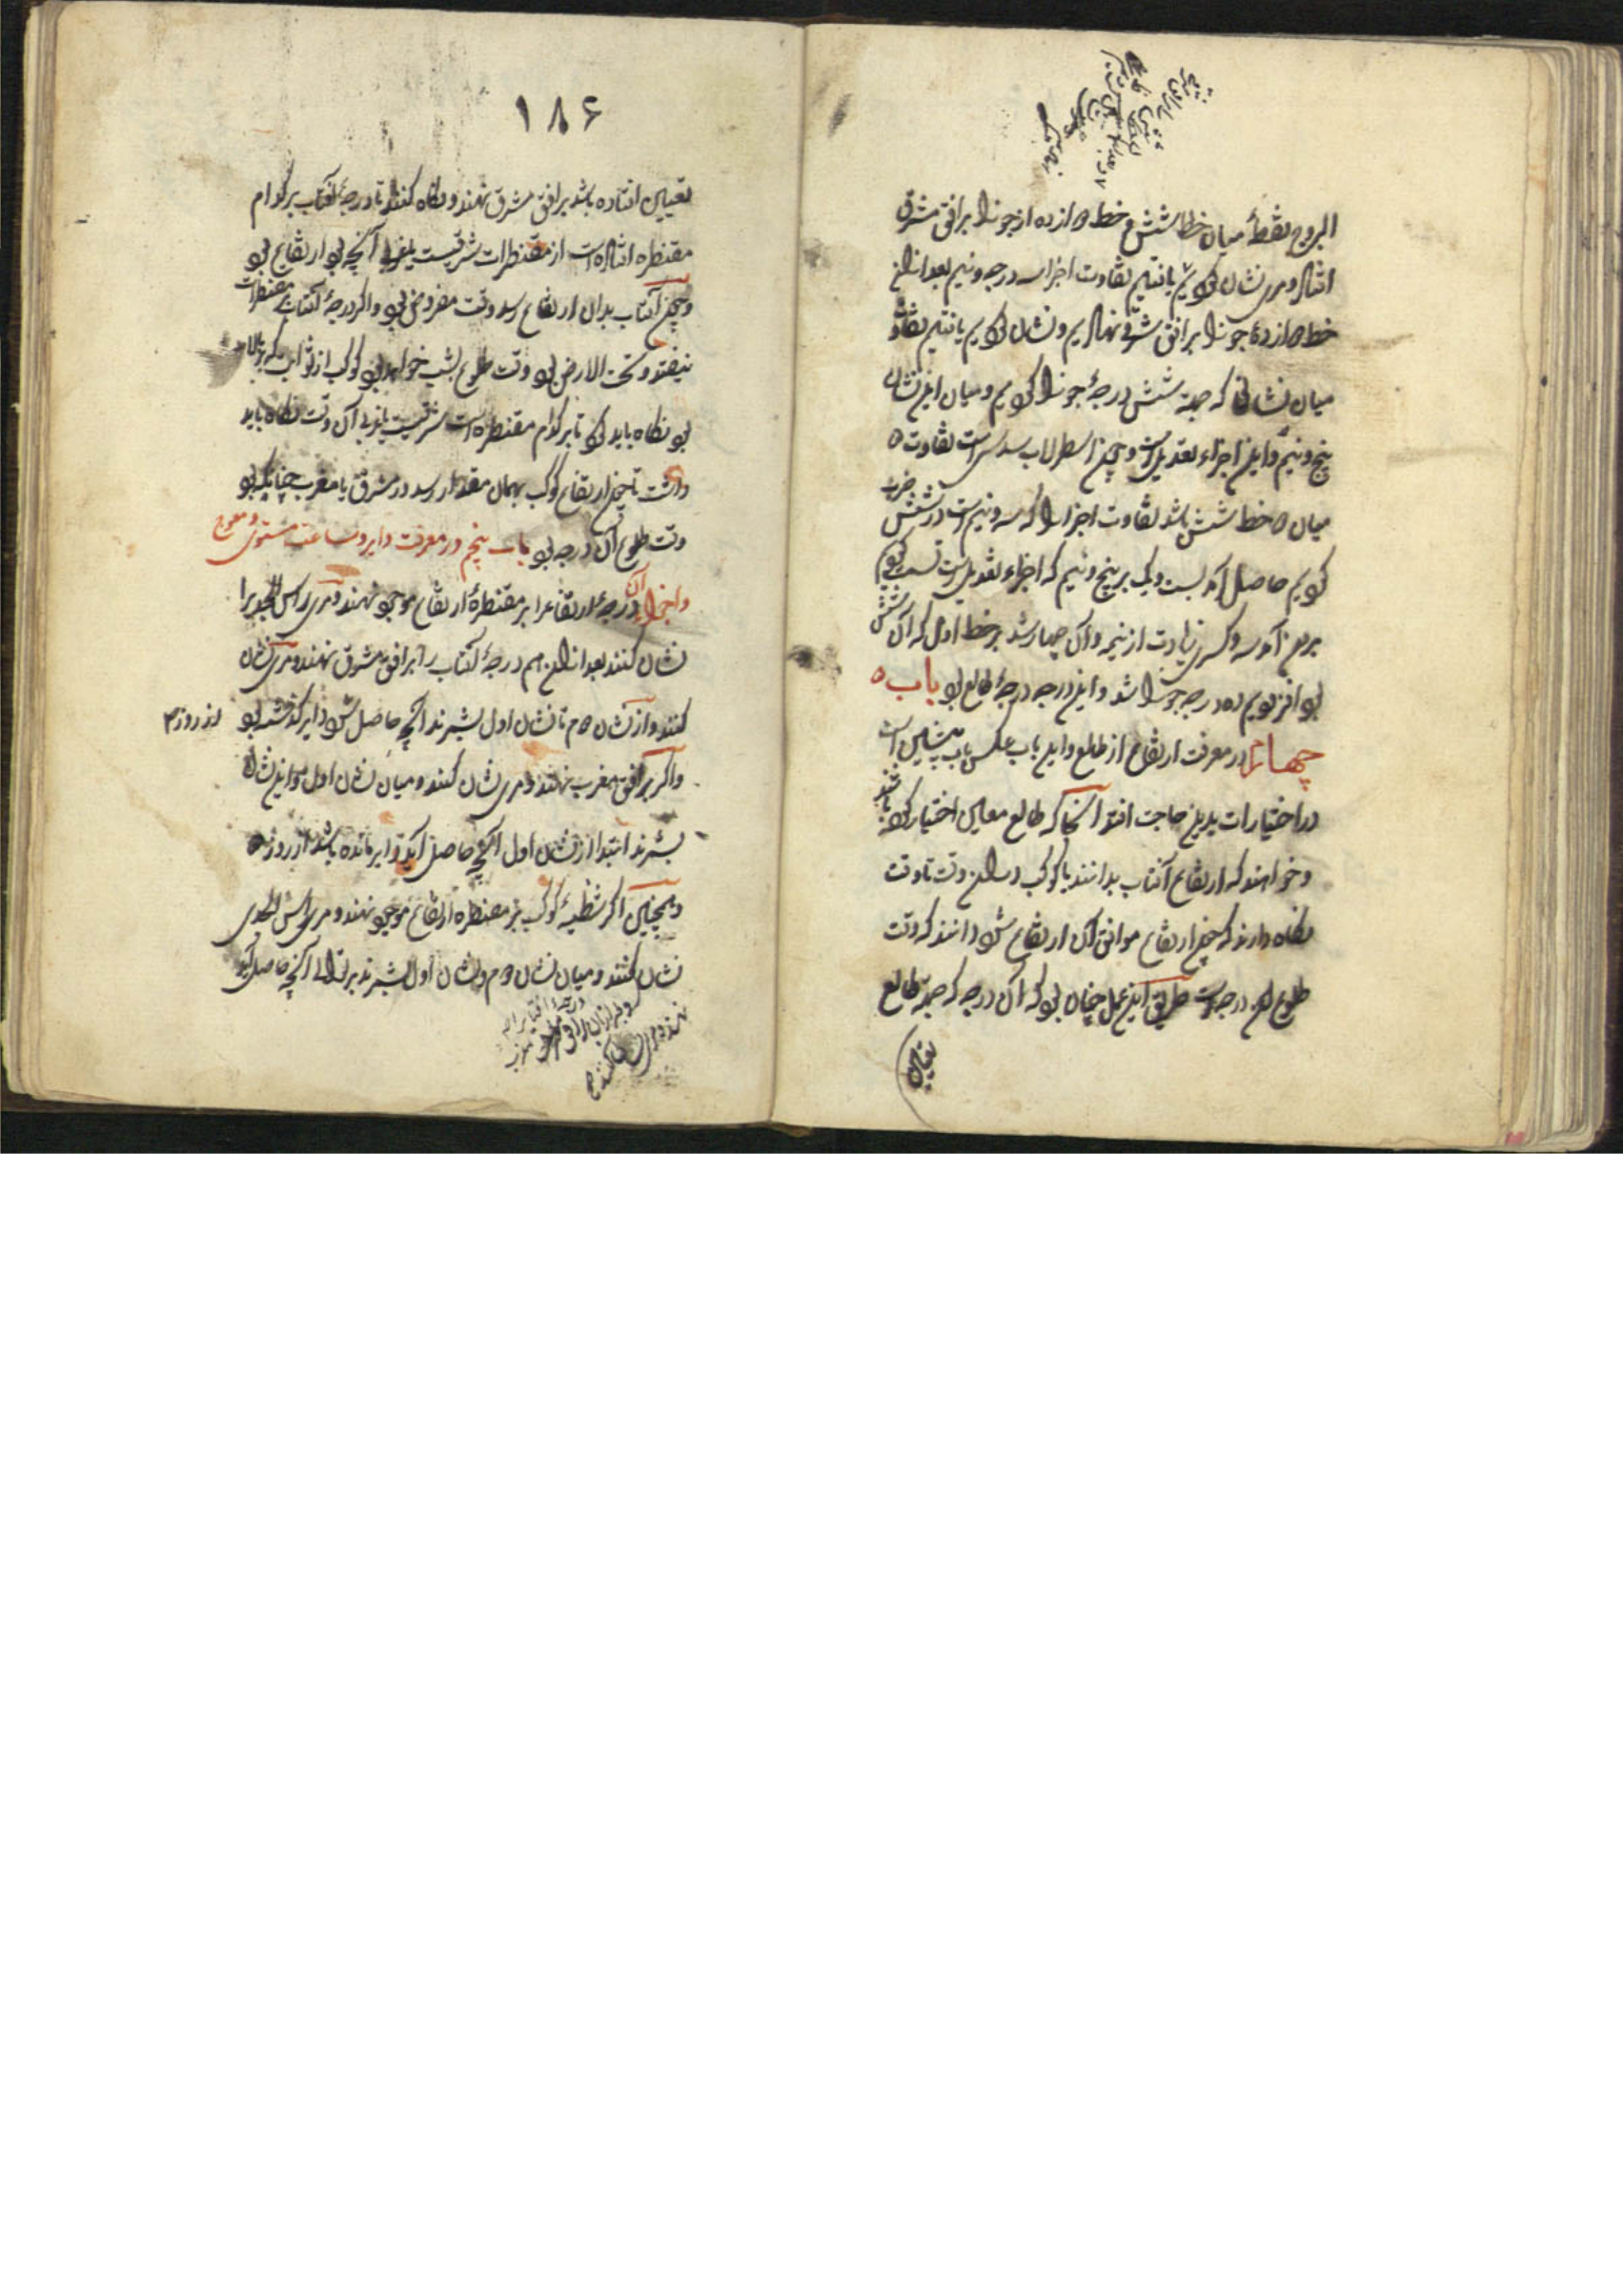 البروج نقطهٔ میان خط شش و خط دوازده از جوزا بر افق مشرق
افتاد و مری نشان کردیم یافتیم تفاوت اجزا سه درجه و نیم بعد ازان
خط دوازدهٔ جوزا بر افق شرقی نهادیم و نشان کردیم یافتیم تفاوت
میان نشانی که جهة شش درجهٔ جوزا کردیم و میان این نشان
پنج و نیم و این اجزاء تعدیل است و چون اسطرلاب سدسی است تفاوت
میان دو خط شش باشد تفاوت اجزا را که سه و نیم است در شش ضرب
کردیم حاصل آمد بیست و یک بر پنج و نیم که اجزاء تعدیل است قسمت کردیم
بیرون آمد سه و کسری زیادت از نیمه و آن چهار شد بر خط اول که آن شش
بود افزودیم ده درجه جوزا شد و این درجه درجهٔ طالع بود باب
چهارم در معرفت ارتفاع از طالع و این باب عکس باب پیشین است
در اختیارات بدین حاجت افتد آنجا که طالع معین اختیار کرده باشند
و خواهند که ارتفاع آفتاب بدانند یا کوکب در آن وقت تا وقت
نگاه دارند که چون ارتفاع موافق آن ارتفاع شود دانند که وقت
طلوع آن درجه است طریق این عمل چنان بود که آن درجه که جهة طالع
تعیین
۱۸۶
تعیین افتاده باشد بر افق مشرق نهند و نگاه کنند تا درجهٔ آفتاب بر کدام
مقنطره افتاده است از مقنطرات شرقیست یا غربی آنچه بود ارتفاع بود
و چون آفتاب بدان ارتفاع رسد وقت مفروض بود و اگر درجهٔ آفتاب بر مقنطرات
نیفتد و تحت الارض بود وقت طلوع بشب خواهد بود کوکب از ثوابت که بالا
بود نگاه باید کرد تا بر کدام مقنطره است شرقیست یا غربی آن وقت نگاه باید
داشت تا چون ارتفاع کوکب بهمان مقدار رسد در مشرق یا مغرب چنانکه بود
وقت طلوع آن درجه بود باب پنجم در معرفت دایر و ساعت مستوی و معوج
و اجزاء آن درجهٔ ارتفاع را بر مقنطرهٔ ارتفاع موجود نهند و مری راس الجدی را
نشان کنند بعد ازان هم درجهٔ آفتاب را بر افق مشرق نهند و مری نشان
کنند و از نشان دوم تا نشان اول بشمرند آنچه حاصل شود دایر گذشته بود از روز
و اگر بر افق مغرب نهند و مری نشان کنند و میان نشان اول و این نشان
بشمرند ابتدا از نشان اول آنچه حاصل آید دایر مانده باشد از روز
و همچنین اگر شظیهٔ کوکب بر مقنطره ارتفاع موجود نهند و مری راس الجدی
نشان کنند و میان نشان دوم و نشان اول بشمرند بر توالی آنچه حاصل آید